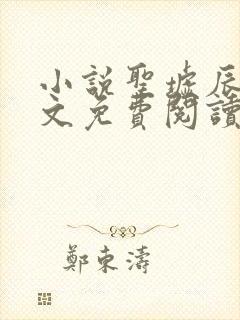 小説聖墟辰
文免費閱讀
鄭東濤